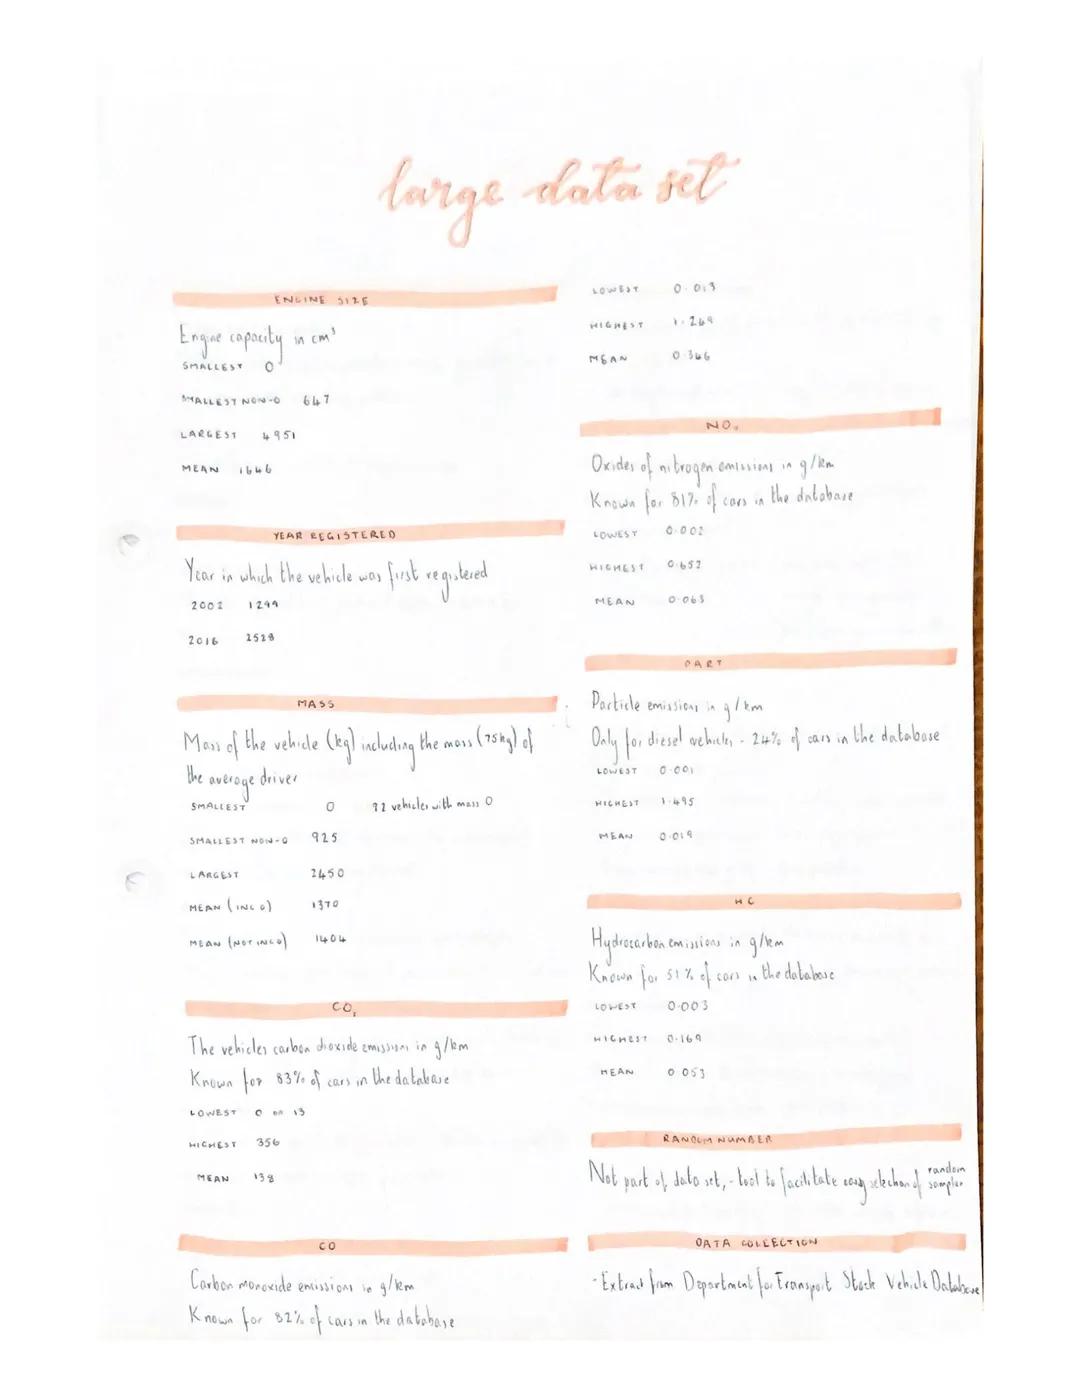 large data set
ENGINE SIZE
Engine capacity in cm³
SMALLEST 0
SMALLEST NON-0 647
LARGEST 4951
MEAN 1646
YEAR REGISTERED
Year in which the vehicle was first registered
2002 1299
2016 2528
MASS
Mass of the vehicle (kg) including the mass (75kg) of
the average driver
SMALLEST 0 22 vehicles with mass 0
SMALLEST NON-0 925
LARGEST 2450
MEAN (INC 0) 1370
MEAN (NOT INC 0) 1404
CO₂
The vehicles carbon dioxide emissions in g/km
Known for 83% of cars in the database
LOWEST 0 or 13
HIGHEST 356
MEAN 138
CO
Carbon monoxide emissions in g/km
Known for 82% of cars in the database
LOWEST 0.013
HIGHEST 1.269
MEAN 0.366
NOₓ
Oxides of nitrogen emissions in g/km
Known for 81% of cars in the database
LOWEST 0.002
HIGHEST 0.652
MEAN 0.063
PART
Particle emissions in g/km
Only for diesel vehicles - 24% of cars in the database
LOWEST 0.001
HIGHEST 1.495
MEAN 0.019
HC
Hydrocarbon emissions in g/km
Known for 51% of cars in the database
LOWEST 0.003
HIGHEST 0.169
MEAN 0.053
RANDOM NUMBER
Not part of data set, - tool to facilitate easy selection of random samples
DATA COLLECTION
- Extract from Department for Transport Stock Vehicle Database